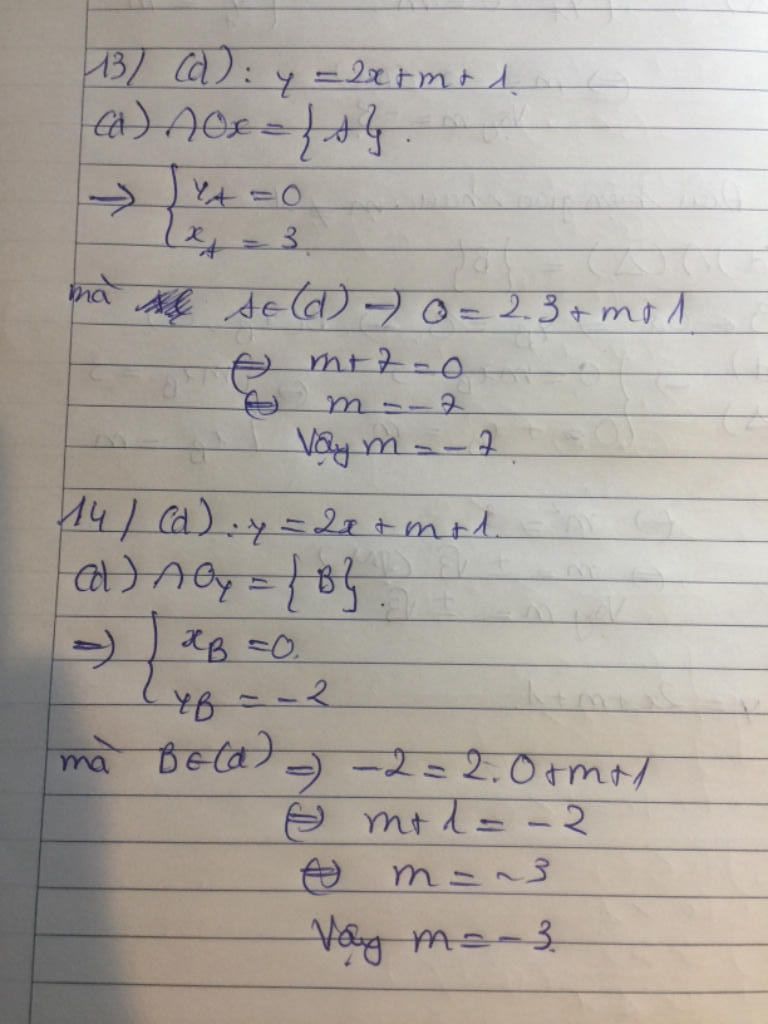 13/ (d): y = 2x+m+1.
(d) ∩ Ox = {A}.
⇒ { yA = 0
xA = 3.
mà A∈(d) → 0 = 2.3 + m+1.
⇔ m+7 = 0
⇔ m = -7
Vậy m = -7.
14/ (d): y = 2x + m+1.
(d) ∩ Oy = {B}.
⇒ { xB = 0.
yB = -2
mà B∈(d) ⇒ -2 = 2.0+m+1
⇔ m+1 = -2
⇔ m = -3
Vậy m = -3.